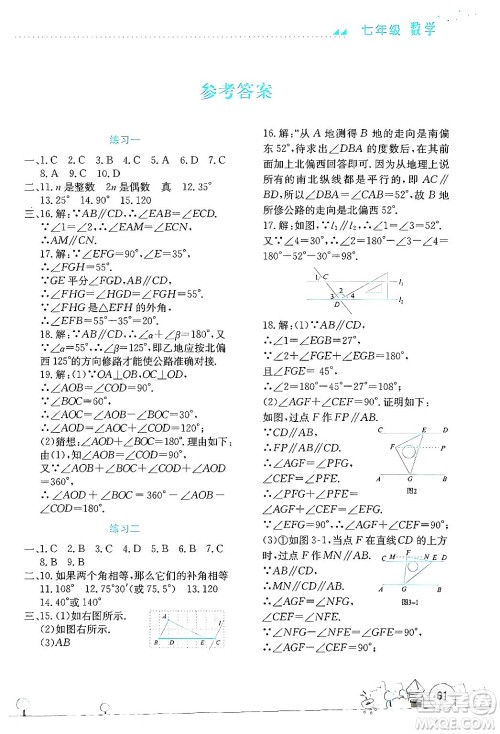 七年级 数学
参考答案
练习一
一、1. C 2. C 3. C 4. D 5. C 6. C 7. C
8. A 9. D 10. C
二、11. n 是整数 2n 是偶数 真 12. 35°
13. 25° 14. 90° 15. 120
三、16. 解：∵AB∥CD，∴∠EAB=∠ECD.
∵∠1=∠2，∴∠EAM=∠ECN，
∴AM∥CN.
17. 解：∵∠EFG=90°，∠E=35°，
∴∠FGH=55°.
∵GE 平分∠FGD，AB∥CD，
∴∠FHG=∠HGD=∠FGH=55°.
∵∠FHG 是△EFH 的外角，
∴∠EFB=55°-35°=20°.
18. 解：∵AB∥CD，∴∠α+∠β=180°.
∵∠α=55°，∴∠β=125°，即乙地应按北偏
西 125°的方向修路才能使公路准确对接.
19. 解：(1)∵OA⊥OB，OC⊥OD，
∴∠AOB=∠COD=90°.
∵∠AOC=60°，∴∠BOC=30°，
∴∠BOD=∠COD-∠BOC=60°.
(2)猜想：∠AOD+∠BOC=180°. 理由如下：
由(1)可知∠AOB=∠COD=90°，
∵∠AOB+∠BOC+∠COD+∠AOD
=360°，
∴∠AOD+∠BOC=360°-∠AOB-
∠COD=180°.
练习二
一、1. C 2. D 3. D 4. B 5. D 6. B
7. C 8. C 9. C
二、10. 如果两个角相等，那么它们的补角相等
11. 108° 12. 75°30′(或75.5°) 13. 120
14. 40°或 140°
三、15. (1)如右图所示.
(2)如右图所示.
(3)AB
A
B D C E
16. 解：“从 A 地测得 B 地的走向是南偏
东 52°，待求出∠DBA 的度数后，按其前
面加上北偏西回答即可. 因为 A，B 两地
所在的南北纵线都是平行的，即 AC∥
BD，∴∠DBA=∠CAB=52°，故 B 地
所修公路的走向是北偏西 52°.
17. 解：∵l₁∥l₂，∠1=52°，∴∠4=∠1=52°.
又∵∠4=∠3，∴∠3=52°.
又∵∠2=180°-52°-30°=98°.
C
l₁
3 2
4
1
l₂
18. 解：(1)∵AB∥CD，
∴∠1=∠EGB.
∵∠2+∠FGE+∠EGB=180°，
∴∠2+∠FGE+∠1=180°.
又∵∠2=2∠1，
且∠FGE=60°，
∴∠1=40°.
(2)∠AGF+∠CEF=90°. 证明如下：
如图，过点 F 作 FP∥AB.
∵CD∥AB，
∴FP∥AB∥CD.
∴∠AGF=∠GFP，
∠CEF=∠EFP.
∴∠AGF+∠CEF
=∠GFP+∠EFP
=∠GFE.
∵∠GFE=90°，
∴∠AGF+∠CEF=90°.
C E D
F P
A G B
图2
(3)①如图 3-1，当点 F 在直线CD 的上方
时，过点 F 作 MN∥AB，
∵MN∥AB，
∴∠AGF=∠GFN.
∵∠GFE=90°，
∴∠EFN=90°-∠AGF.
∵MN∥AB，AB∥CD，
图3-1
61